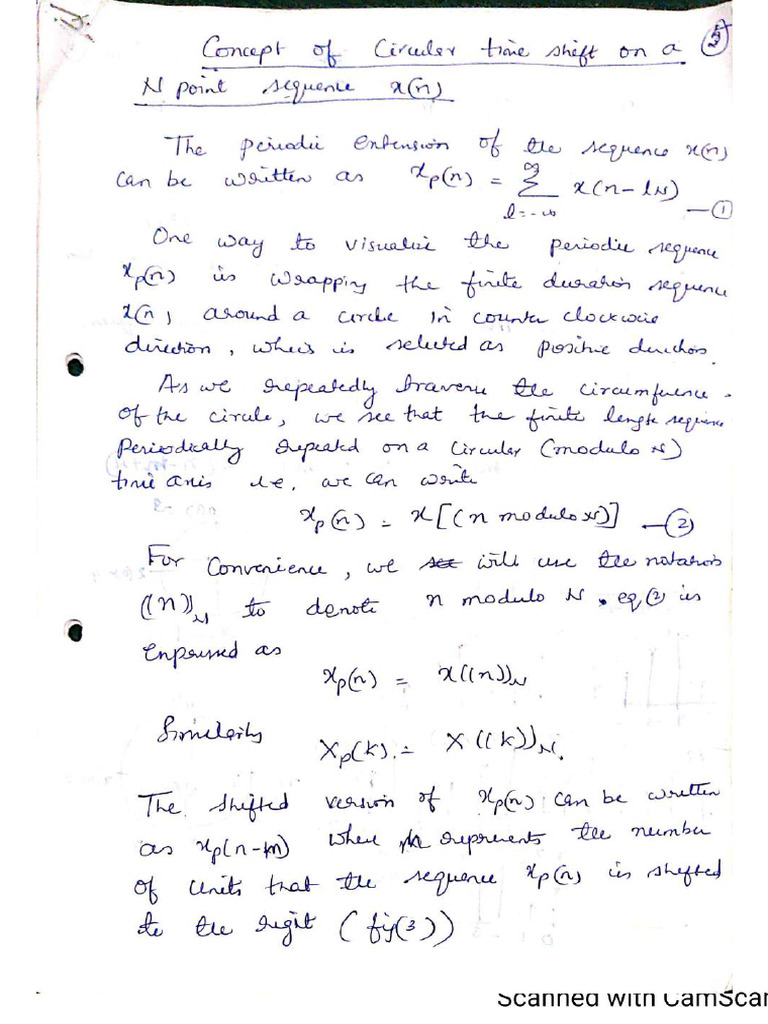 Concept of Circular time shift on a
N point sequence x(n)
The periodic extension of the sequence x(n)
can be written as xp(n) = ∞ Σ l=-∞ x(n-lN) —①
One way to visualize the periodic sequence
xp(n) is wrapping the finite duration sequence
x(n) around a circle in counter clockwise
direction, which is selected as positive direction.
As we repeatedly traverse the circumference
of the circle, we see that the finite length sequence
periodically repeated on a circular (modulo N)
time axis i.e, we can write
xp(n) = x[(n modulo N)] —②
For convenience, we will use the notation
((n))N to denote n modulo N. eq② is
expressed as
xp(n) = x((n))N
Similarly
Xp(k) = X((k))N.
The shifted version of xp(n) can be written
as xp(n-m) where m represents the number
of units that the sequence xp(n) is shifted
to the right (fig(3))
Scanned with CamScan